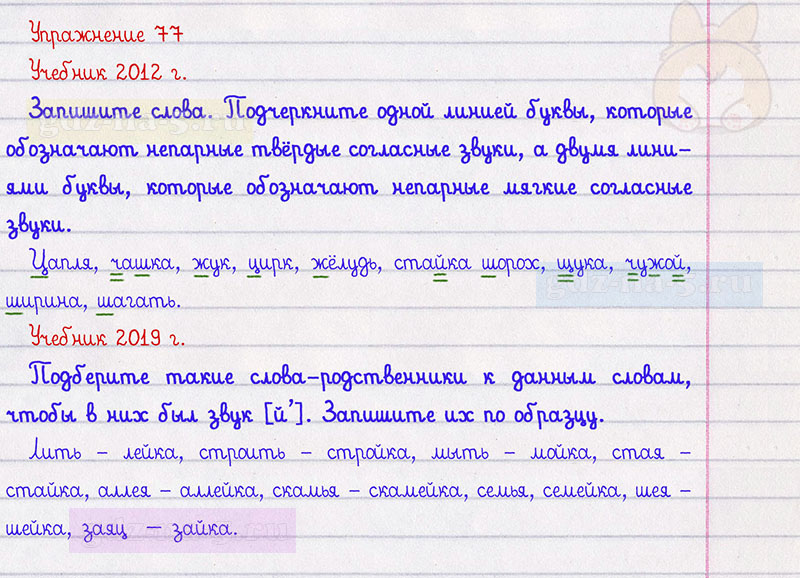 Упражнение 77
Учебник 2012 г.
Запишите слова. Подчеркните одной линией буквы, которые
обозначают непарные твёрдые согласные звуки, а двумя лини-
ями буквы, которые обозначают непарные мягкие согласные
звуки.
Цапля, чашка, жук, цирк, жёлудь, стайка шорох, щука, чужой,
ширина, шагать.
Учебник 2019 г.
Подберите такие слова-родственники к данным словам,
чтобы в них был звук [й’]. Запишите их по образцу.
Лить – лейка, строить – стройка, мыть – мойка, стая –
стайка, аллея – аллейка, скамья – скамейка, семья, семейка, шея –
шейка, заяц – зайка.
gdz-na-5.ru
gdz-na-5.ru
gdz-na-5.ru